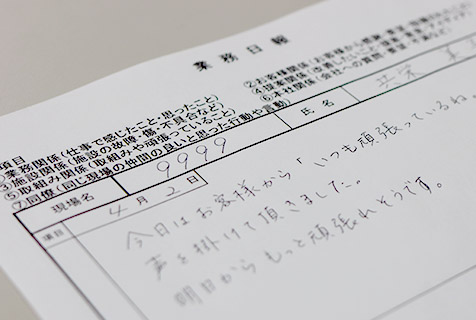 業務日報
項目
①業務関係(仕事で感じたこと・思ったこと)
②お客様関係(お客様から感謝・要望・指摘されたこと
③施設関係(施設の故障・傷・不具合など)
④提案関係(改善したいこと・提案・発見・アイディア)
⑤取組み関係(取組みや頑張っていること)
⑥本社関係(会社への質問・要望・不満など)
⑦同僚(同じ現場の仲間の良いと思った行動や言動)
現場名 9999 氏名 共栄
項目 4月2日
今日はお客様から「いつも頑張っているね。
声を掛けて頂きました。
明日からもっと頑張れそうです。